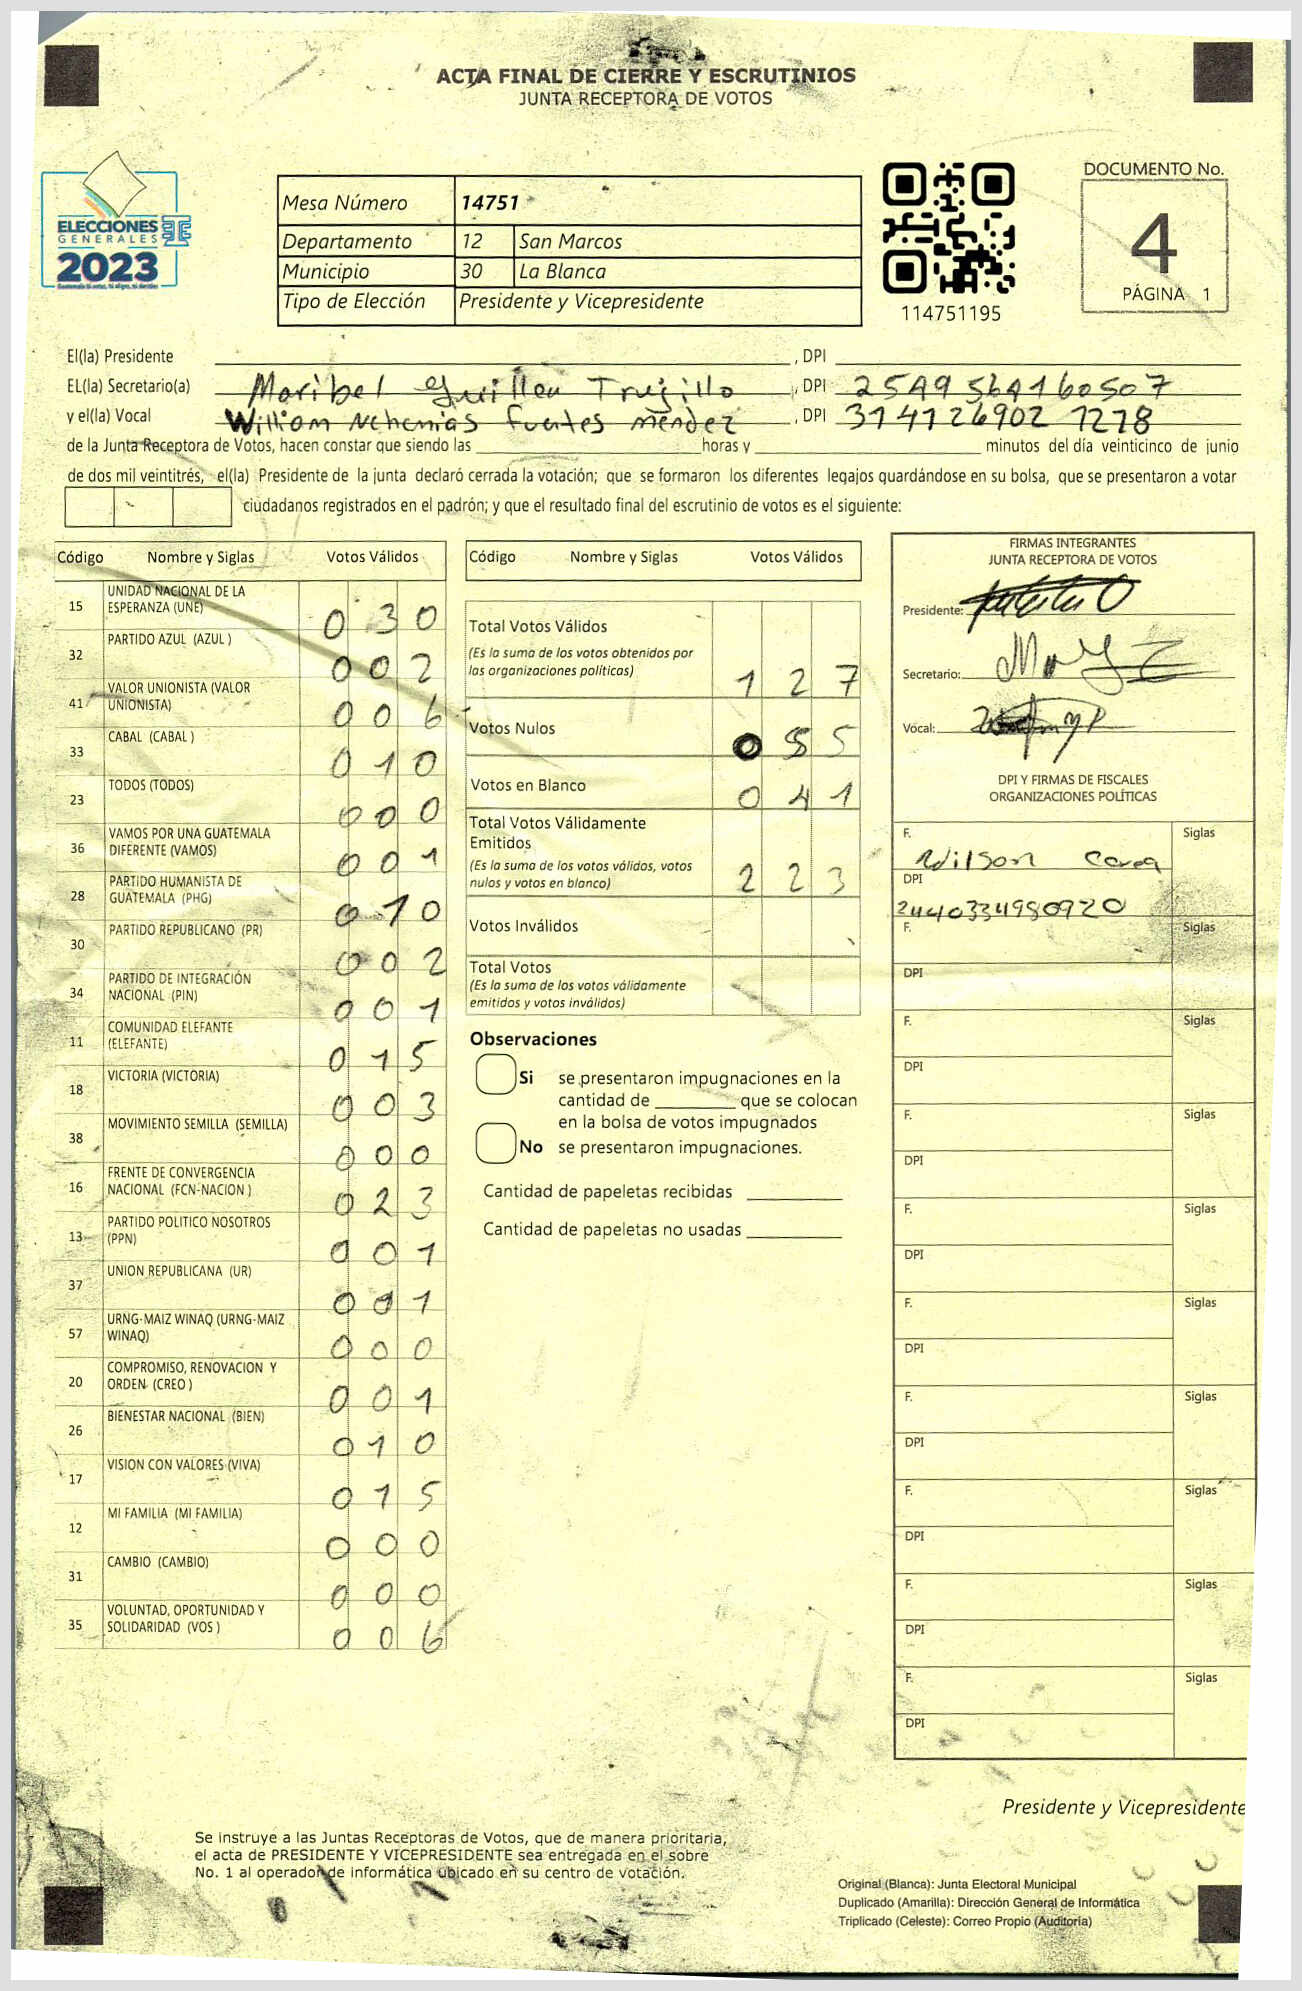 ACTA FINAL DE CIERRE Y ESCRUTINIOS
JUNTA RECEPTORA DE VOTOS
ELECCIONES
GENERALES
2023
Mesa Número 14751
Departamento 12 San Marcos
Municipio 30 La Blanca
Tipo de Elección Presidente y Vicepresidente
114751195
DOCUMENTO No.
4
PÁGINA 1
El(la) Presidente , DPI
EL(la) Secretario(a) Maribel Guillen Trujillo , DPI 2549564160507
y el(la) Vocal William Nehemias Fuentes Méndez , DPI 314126902 1218
de la Junta Receptora de Votos, hacen constar que siendo las horas y minutos del día veinticinco de junio
de dos mil veintitrés, el(la) Presidente de la junta declaró cerrada la votación; que se formaron los diferentes legajos guardándose en su bolsa, que se presentaron a votar
ciudadanos registrados en el padrón; y que el resultado final del escrutinio de votos es el siguiente:
Código Nombre y Siglas Votos Válidos
15 UNIDAD NACIONAL DE LA ESPERANZA (UNE) 0 3 0
32 PARTIDO AZUL (AZUL ) 0 0 2
41 VALOR UNIONISTA (VALOR UNIONISTA) 0 0 6
33 CABAL (CABAL ) 0 1 0
23 TODOS (TODOS) 0 0 0
36 VAMOS POR UNA GUATEMALA DIFERENTE (VAMOS) 0 0 1
28 PARTIDO HUMANISTA DE GUATEMALA (PHG) 0 1 0
30 PARTIDO REPUBLICANO (PR) 0 0 2
34 PARTIDO DE INTEGRACIÓN NACIONAL (PIN) 0 0 1
11 COMUNIDAD ELEFANTE (ELEFANTE) 0 1 5
18 VICTORIA (VICTORIA) 0 0 3
38 MOVIMIENTO SEMILLA (SEMILLA) 0 0 0
16 FRENTE DE CONVERGENCIA NACIONAL (FCN-NACION ) 0 2 3
13 PARTIDO POLITICO NOSOTROS (PPN) 0 0 1
37 UNION REPUBLICANA (UR) 0 0 1
57 URNG-MAIZ WINAQ (URNG-MAIZ WINAQ) 0 0 0
20 COMPROMISO, RENOVACION Y ORDEN (CREO ) 0 0 1
26 BIENESTAR NACIONAL (BIEN) 0 1 0
17 VISION CON VALORES (VIVA) 0 1 5
12 MI FAMILIA (MI FAMILIA) 0 0 0
31 CAMBIO (CAMBIO) 0 0 0
35 VOLUNTAD, OPORTUNIDAD Y SOLIDARIDAD (VOS ) 0 0 6
Código Nombre y Siglas Votos Válidos
Total Votos Válidos 1 2 7
(Es la suma de los votos obtenidos por
las organizaciones políticas)
Votos Nulos 0 5 5
Votos en Blanco 0 4 1
Total Votos Válidamente
Emitidos
(Es la suma de los votos válidos, votos
nulos y votos en blanco) 2 2 3
Votos Inválidos
Total Votos
(Es la suma de los votos válidamente
emitidos y votos inválidos)
Observaciones
Si se presentaron impugnaciones en la
cantidad de que se colocan
en la bolsa de votos impugnados
No se presentaron impugnaciones.
Cantidad de papeletas recibidas
Cantidad de papeletas no usadas
FIRMAS INTEGRANTES
JUNTA RECEPTORA DE VOTOS
Presidente:
Secretario:
Vocal:
DPI Y FIRMAS DE FISCALES
ORGANIZACIONES POLÍTICAS
F. Wilson Siglas
DPI 2440334980920
F. Siglas
DPI
F. Siglas
DPI
F. Siglas
DPI
F. Siglas
DPI
F. Siglas
DPI
F. Siglas
DPI
F. Siglas
DPI
F. Siglas
DPI
F. Siglas
DPI
Presidente y Vicepresidente
Se instruye a las Juntas Receptoras de Votos, que de manera prioritaria,
el acta de PRESIDENTE Y VICEPRESIDENTE sea entregada en el sobre
No. 1 al operador de informática ubicado en su centro de votación.
Original (Blanca): Junta Electoral Municipal
Duplicado (Amarilla): Dirección General de Informática
Triplicado (Celeste): Correo Propio (Auditoría)